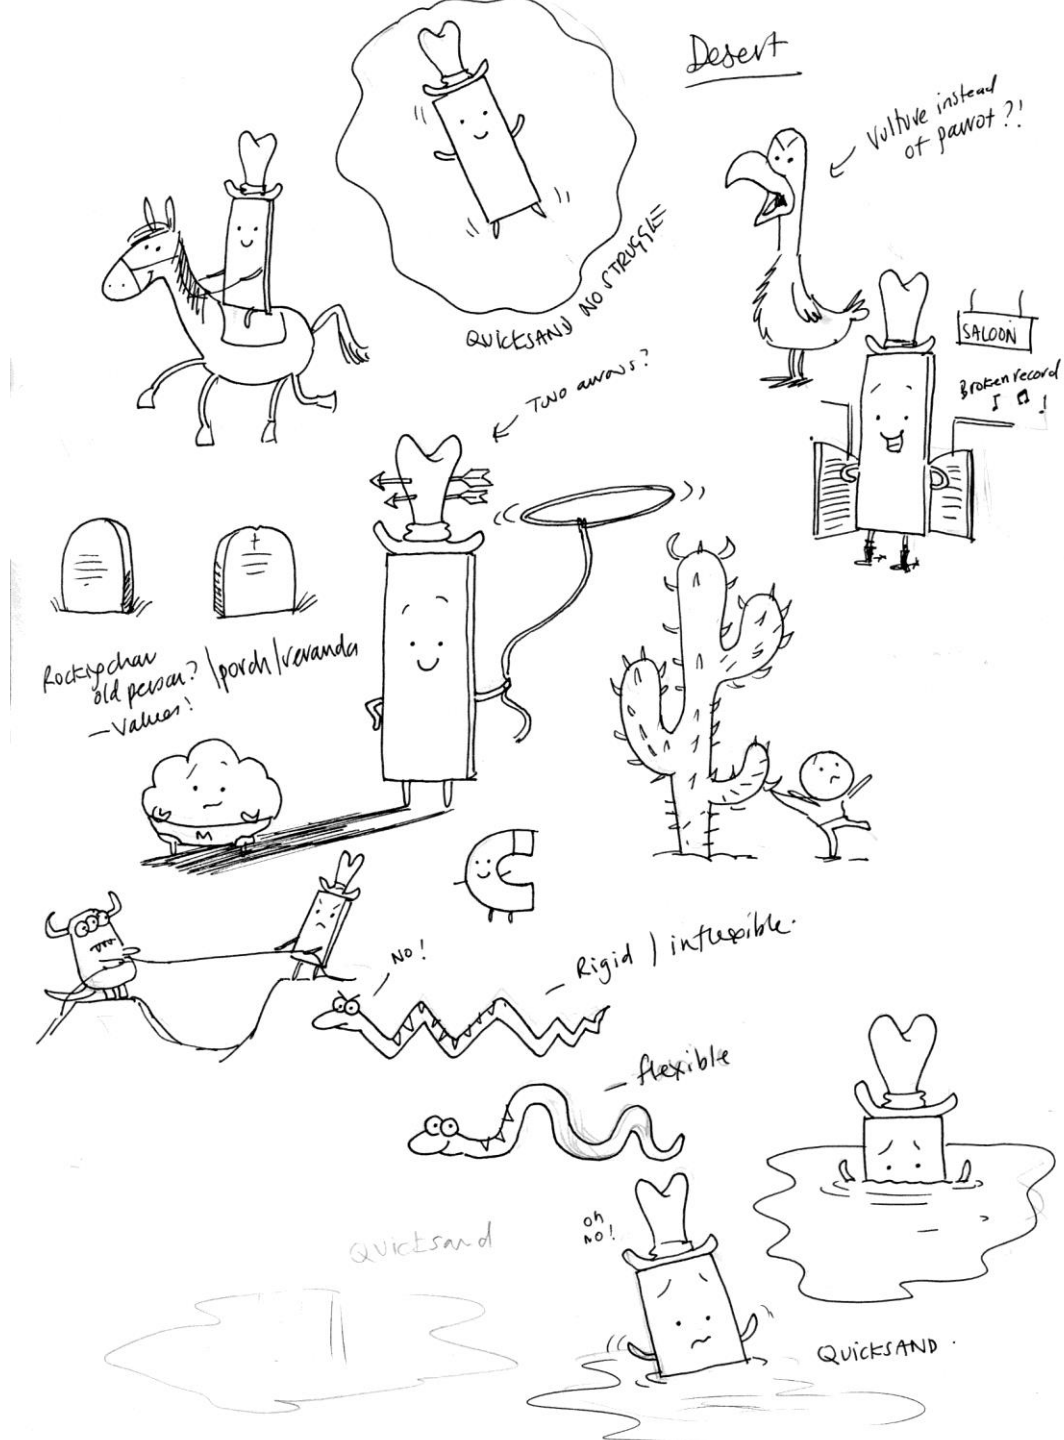 Desert
Vulture instead
of parrot ?!
QUICKSAND NO STRUGGLE
SALOON
Broken record
Two arrows?
Rocking chair
old person? / porch / veranda
– Values!
M
NO!
– Rigid / inflexible.
– flexible
Quicksand
oh
no!
QUICKSAND.